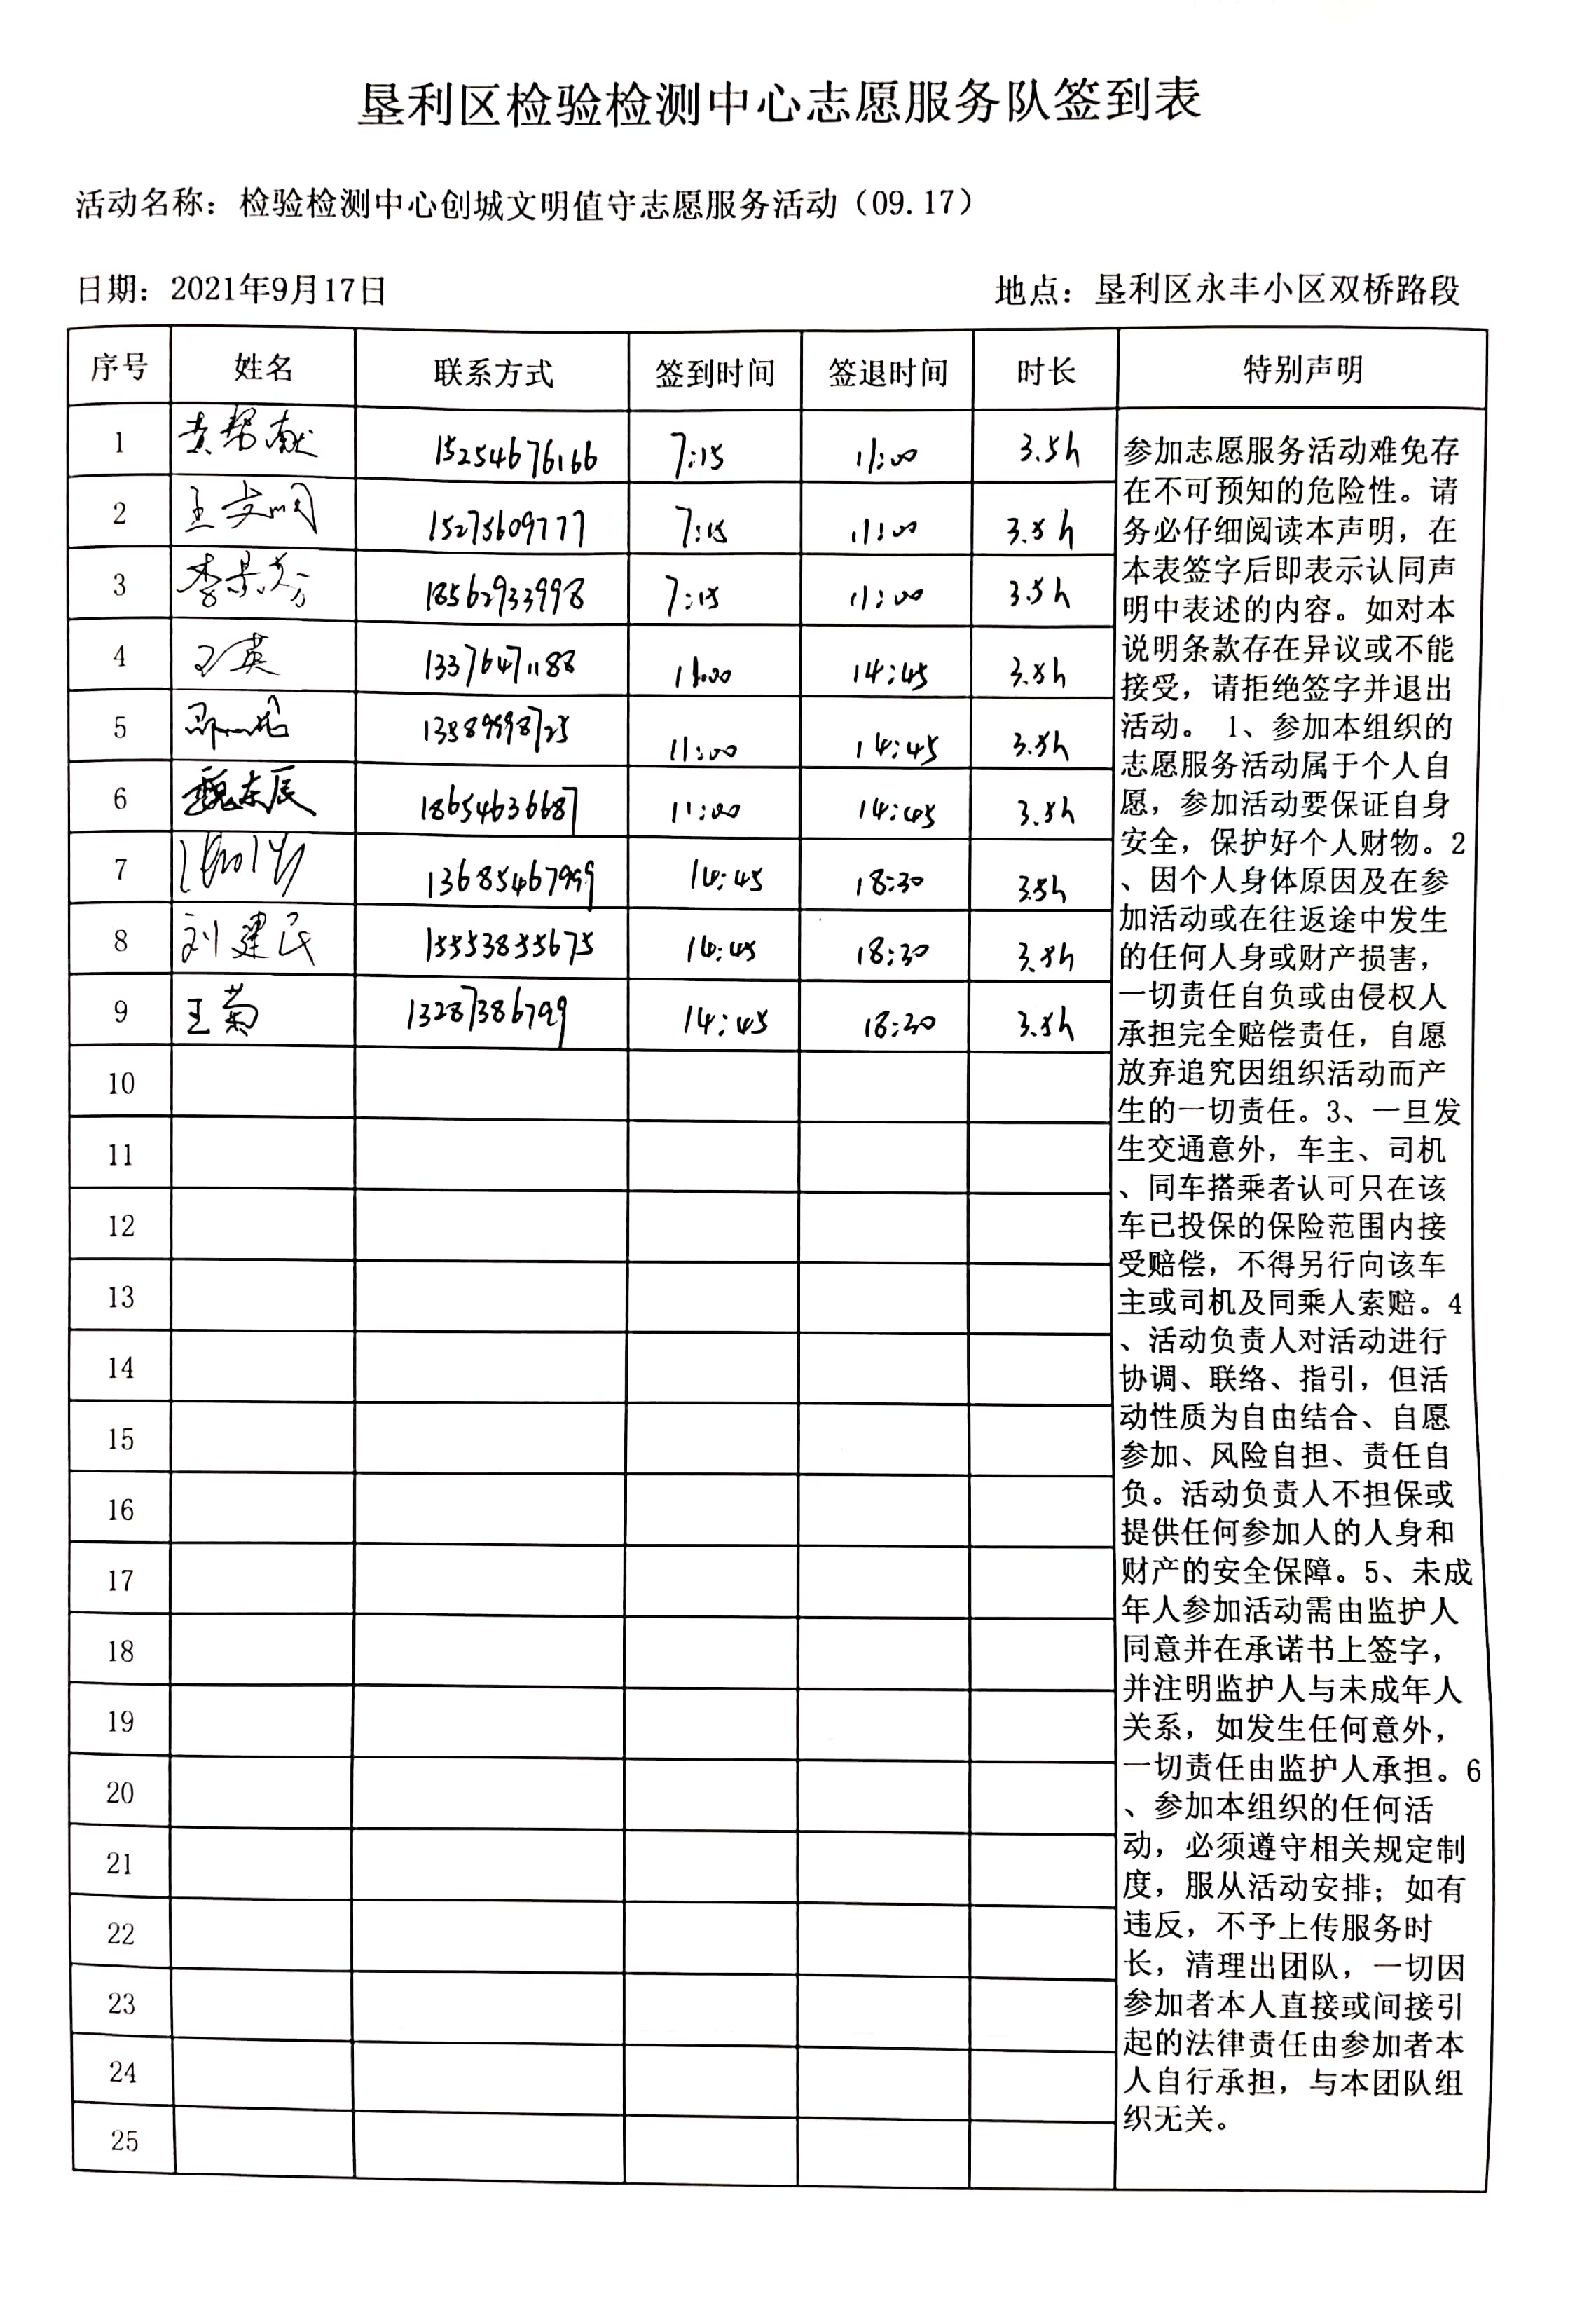 垦利区检验检测中心志愿服务队签到表
活动名称：检验检测中心创城文明值守志愿服务活动（09.17）
日期：2021年9月17日 地点：垦利区永丰小区双桥路段
序号 姓名 联系方式 签到时间 签退时间 时长 特别声明
1 黄帮献 15254676166 7:15 11:00 3.5h
2 王文明 15275609777 7:15 11:00 3.5h
3 李景芬 18562933998 7:15 11:00 3.5h
4 王英 13376471188 11:00 14:45 3.5h
5 13589998725 11:00 14:45 3.5h
6 魏东辰 18654636687 11:00 14:45 3.5h
7 13685467999 14:45 18:30 3.5h
8 刘建民 15553855675 14:45 18:30 3.5h
9 王菊 13287386799 14:45 18:30 3.5h
10
11
12
13
14
15
16
17
18
19
20
21
22
23
24
25
参加志愿服务活动难免存
在不可预知的危险性。请
务必仔细阅读本声明，在
本表签字后即表示认同声
明中表述的内容。如对本
说明条款存在异议或不能
接受，请拒绝签字并退出
活动。 1、参加本组织的
志愿服务活动属于个人自
愿，参加活动要保证自身
安全，保护好个人财物。2
、因个人身体原因及在参
加活动或在往返途中发生
的任何人身或财产损害，
一切责任自负或由侵权人
承担完全赔偿责任，自愿
放弃追究因组织活动而产
生的一切责任。3、一旦发
生交通意外，车主、司机
、同车搭乘者认可只在该
车已投保的保险范围内接
受赔偿，不得另行向该车
主或司机及同乘人索赔。4
、活动负责人对活动进行
协调、联络、指引，但活
动性质为自由结合、自愿
参加、风险自担、责任自
负。活动负责人不担保或
提供任何参加人的人身和
财产的安全保障。5、未成
年人参加活动需由监护人
同意并在承诺书上签字，
并注明监护人与未成年人
关系，如发生任何意外，
一切责任由监护人承担。6
、参加本组织的任何活
动，必须遵守相关规定制
度，服从活动安排；如有
违反，不予上传服务时
长，清理出团队，一切因
参加者本人直接或间接引
起的法律责任由参加者本
人自行承担，与本团队组
织无关。